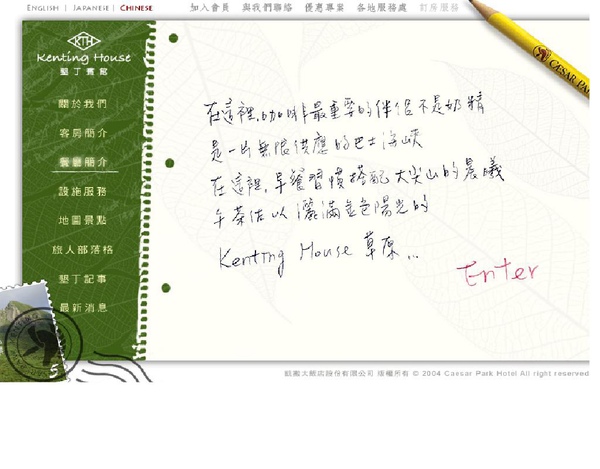 ENGLISH | JAPANESE | CHINESE
加入會員 與我們聯絡 優惠專案 各地服務處 訂房服務
KTH
Kenting House
墾丁賓館
關於我們
客房簡介
餐廳簡介
設施服務
地圖景點
旅人部落格
墾丁記事
最新消息
CAESAR PA
在這裡,咖啡最重要的伴侶不是奶精
是一片無限供應的巴士海峽
在這裡,早餐習慣搭配大尖山的晨曦
午茶佐以灑滿金色陽光的
Kenting House 草原...
Enter
5
大飯店股份有限公司 版權所有 © 2004 Caesar Park Hotel All right reserved